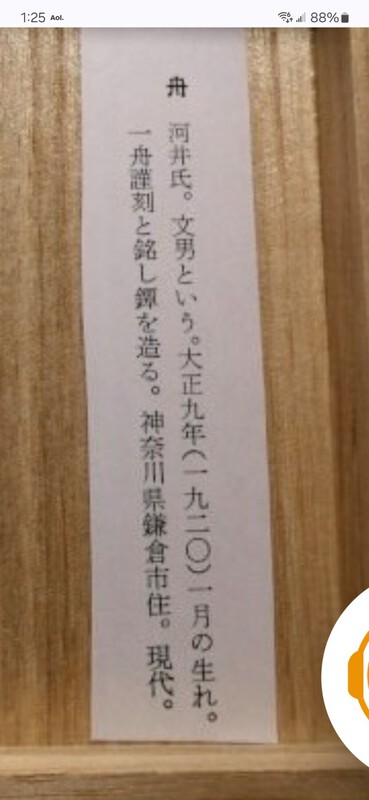 1:25 Aol. 88%
舟
河井氏。文男という。大正九年(一九二〇)一月の生れ。
一舟謹刻と銘し鐔を造る。神奈川県鎌倉市住。現代。